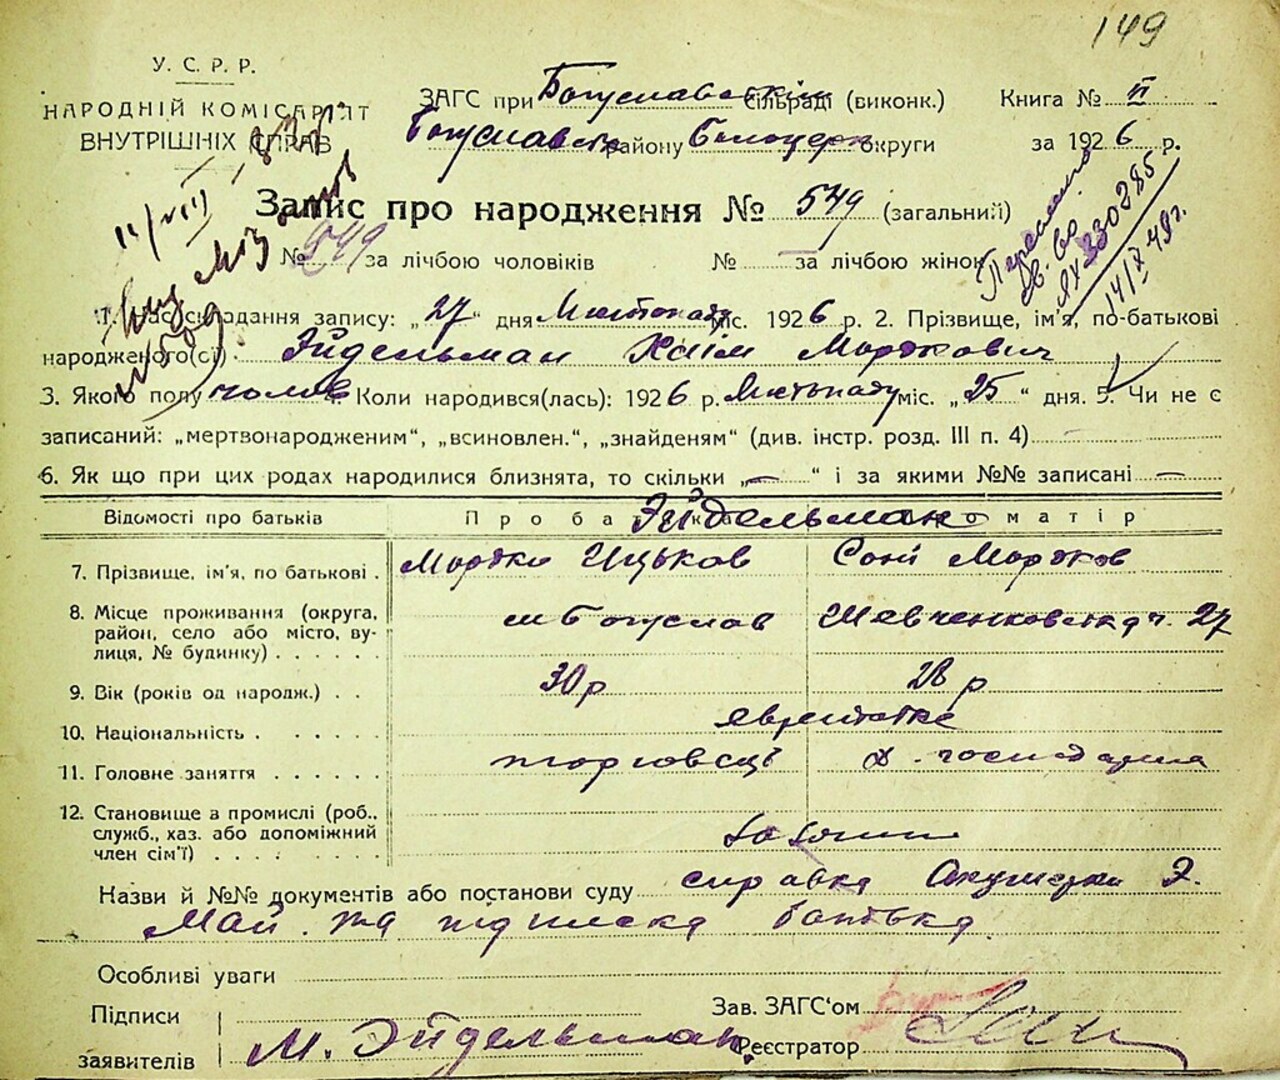 149
У. С. Р. Р.
НАРОДНІЙ КОМІСАРІЯТ
ВНУТРІШНІХ СПРАВ
ЗАГС при Богуславскім сільраді (виконк.)
Книга № II
Богуславськ району Білоцерк округи
за 1926 р.
Запис про народження № 549 (загальний)
№ 549 за лічбою чоловіків № — за лічбою жінок
ЯХ 330285
14/X 49 г.
1. Час складання запису: „27“ дня Листопаду міс. 1926 р. 2. Прізвище, ім'я, по-батькові
народженого(сі) Эйдельман Хаїм Мордкович
3. Якого полу чолов 4. Коли народився(лась): 1926 р. Листопаду міс. „25“ дня. 5. Чи не є
записаний: „мертвонародженим“, „всиновлен.“, „знайденям“ (див. інстр. розд. III п. 4) —
6. Як що при цих родах народилися близнята, то скільки „—“ і за якими №№ записані —
Відомості про батьків
Про батька Про матір
Эйдельман
7. Прізвище, ім'я, по батькові . Мордко Ицьков Соні Мордков
8. Місце проживання (округа,
район, село або місто, ву-
лиця, № будинку) . . . . . . м Богуслав Шевченковська ч. 27
9. Вік (років од народж.) . . 30 р 28 р
10. Національність . . . . . . Явреи
11. Головне заняття . . . . . . торговець д. господарка
12. Становище в промислі (роб.,
служб., хаз. або допоміжний
член сім'ї) . . . . .
Назви й №№ документів або постанови суду справка Акушерки Э.
Май. та підписка батька
Особливі уваги
Підписи
заявителів М. Эйдельман.
Зав. ЗАГС'ом
Реєстратор